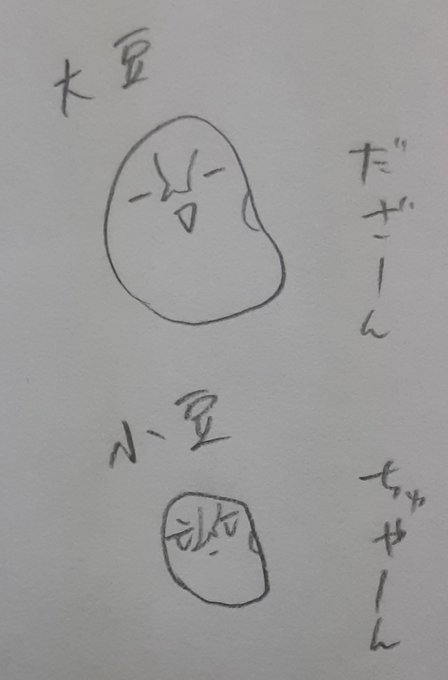 大豆
だざーん
小豆
ちゃやーん